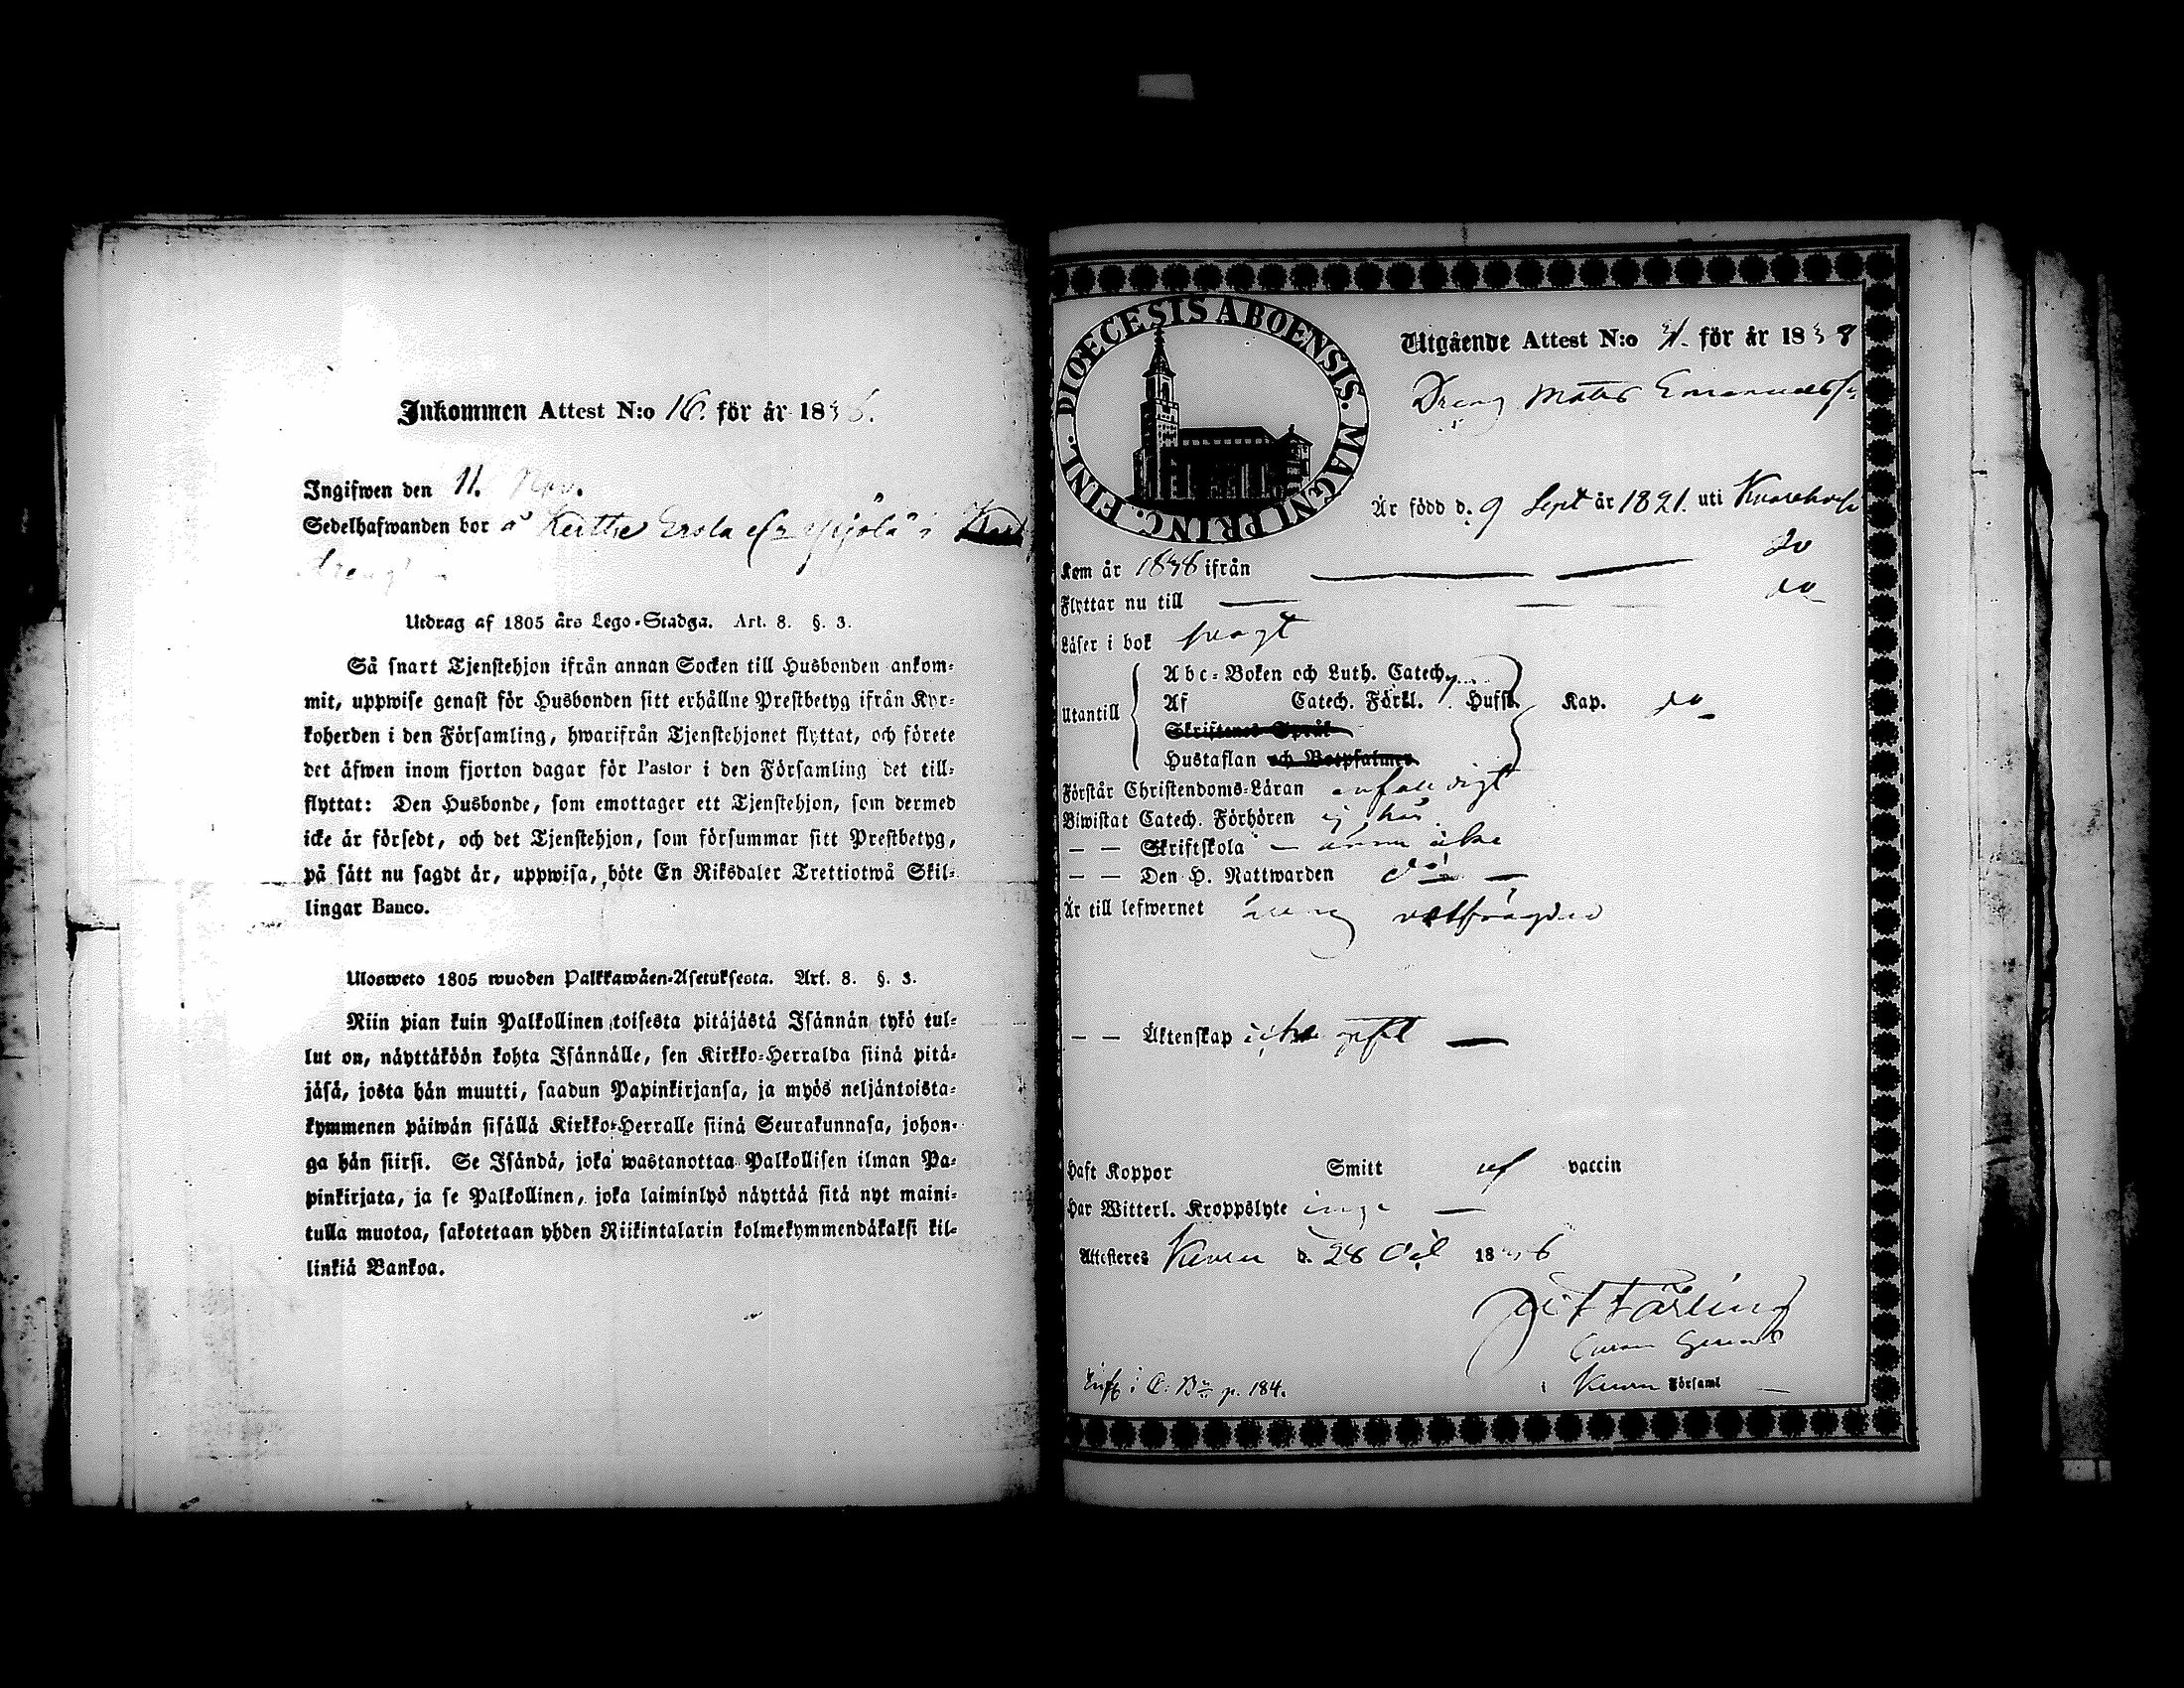 Inkommen Attest N:o 16. för år 183
Ingifwen den 11. Nov.
Sedelhafwanden bor å
Utdrag af 1805 års Lego-Stadga. Art. 8. §. 3.
Så snart Tjenstehjon ifrån annan Socken till Husbonden ankom-
mit, uppwise genast för Husbonden sitt erhållne Prestbetyg ifrån Kyr-
koherden i den Församling, hwarifrån Tjenstehjonet flyttat, och förete
det äfwen inom fjorton dagar för Pastor i den Församling det till-
flyttat: Den Husbonde, som emottager ett Tjenstehjon, som dermed
icke är försedt, och det Tjenstehjon, som försummar sitt Prestbetyg,
på sätt nu sagdt är, uppwisa, böte En Riksdaler Trettiotwå Skil-
lingar Banco.
Ulosweto 1805 wuoden Palkkawäen-Asetuksesta. Art. 8. §. 3.
Niin pian kuin Palkollinen toisesta pitäjästä Isännän tykö tul-
lut on, näyttäköön kohta Isännälle, sen Kirkko-Herralda siinä pitä-
jäsä, josta hän muutti, saadun Papinkirjansa, ja myös neljäntoista-
kymmenen päiwän sisällä Kirkko-Herralle siinä Seurakunnasa, johon-
ga hän siirsi. Se Isändä, joka wastanottaa Palkollisen ilman Pa-
pinkirjata, ja se Palkollinen, joka laiminlyö näyttää sitä nyt maini-
tulla muotoa, sakotetaan yhden Riikintalarin kolmekymmendäkaksi kil-
linkiä Bankoa.
DIOECESIS ABOENSIS. MAGNI PRINC. FINL.
Utgående Attest N:o för år 1838
Dreng Matts Emanuelss
Är född d. 9 Sept år 1821. uti
Kom år 1838 ifrån do
Flyttar nu till do
Läser i bok swagt
Abc-Boken och Luth. Catech.
Utantill Af Catech. Förkl. Hufst. Kap. do
Skriftenes Språk
Hustaflan och Botpsalmer
Förstår Christendoms-Läran enfaldigt
Biwistat Catech. Förhören ej här
— — Skriftskola — ännu icke
— — Den H. Nattwarden do —
Är till lefwernet wälfrägdad
— — Äktenskap icke gift —
Haft Koppor Smitt af vaccin
Har Witterl. Kroppslyte inga —
Attesteres d. 28 Oct 183
i Församl
p. 184.